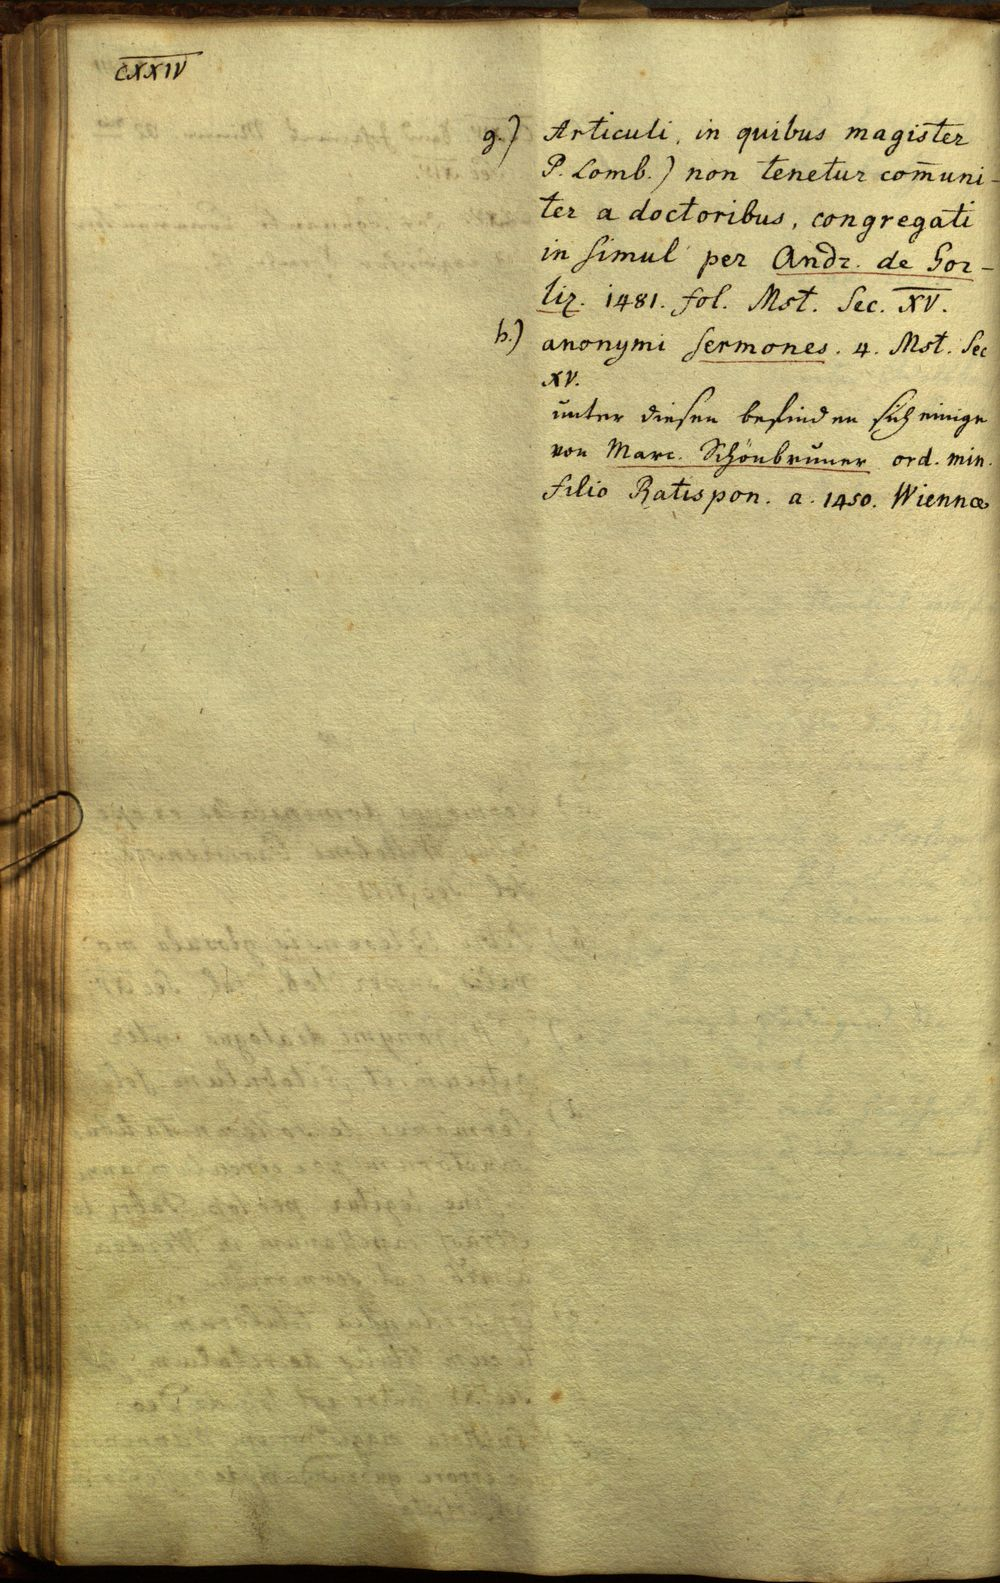 CXXIV
g.) Articuli, in quibus magister
P. Lomb.) non tenetur com̅uni-
ter a doctoribus, congregati
in simul per Andr. de Gor-
liz. 1481. fol. Mst. Sec. XV.
h.) anonymi sermones. 4. Mst. Sec
XV.
unter diesen befinden sich einige
von Marc. Schönbruner ord. min.
filio Ratispon. a. 1450. Wiennæ